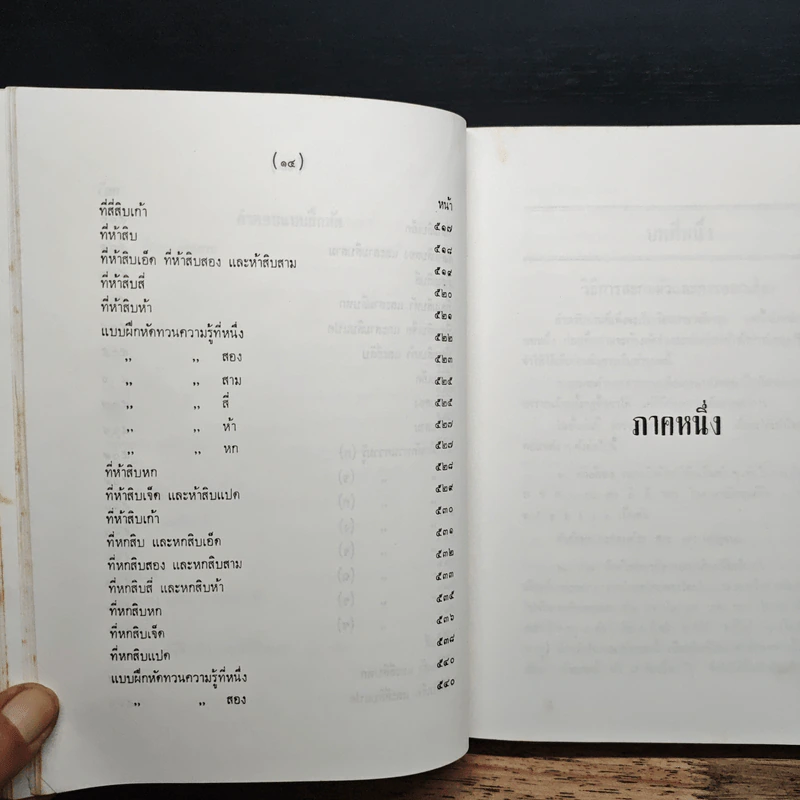 (๑๔)
หน้า
ที่สี่สิบเก้า ๕๑๗
ที่ห้าสิบ ๕๑๘
ที่ห้าสิบเอ็ด ที่ห้าสิบสอง และห้าสิบสาม ๕๑๙
ที่ห้าสิบสี่ ๕๒๐
ที่ห้าสิบห้า ๕๒๑
แบบฝึกหัดทวนความรู้ที่หนึ่ง ๕๒๒
,, ,, สอง ๕๒๓
,, ,, สาม ๕๒๕
,, ,, สี่ ๕๒๕
,, ,, ห้า ๕๒๗
,, ,, หก ๕๒๗
ที่ห้าสิบหก ๕๒๘
ที่ห้าสิบเจ็ด และห้าสิบแปด ๕๒๙
ที่ห้าสิบเก้า ๕๓๐
ที่หกสิบ และหกสิบเอ็ด ๕๓๑
ที่หกสิบสอง และหกสิบสาม ๕๓๒
ที่หกสิบสี่ และหกสิบห้า ๕๓๓
ที่หกสิบหก ๕๓๕
ที่หกสิบเจ็ด ๕๓๖
ที่หกสิบแปด ๕๓๘
แบบฝึกหัดทวนความรู้ที่หนึ่ง ๕๔๐
,, ,, สอง ๕๔๐
ภาคหนึ่ง